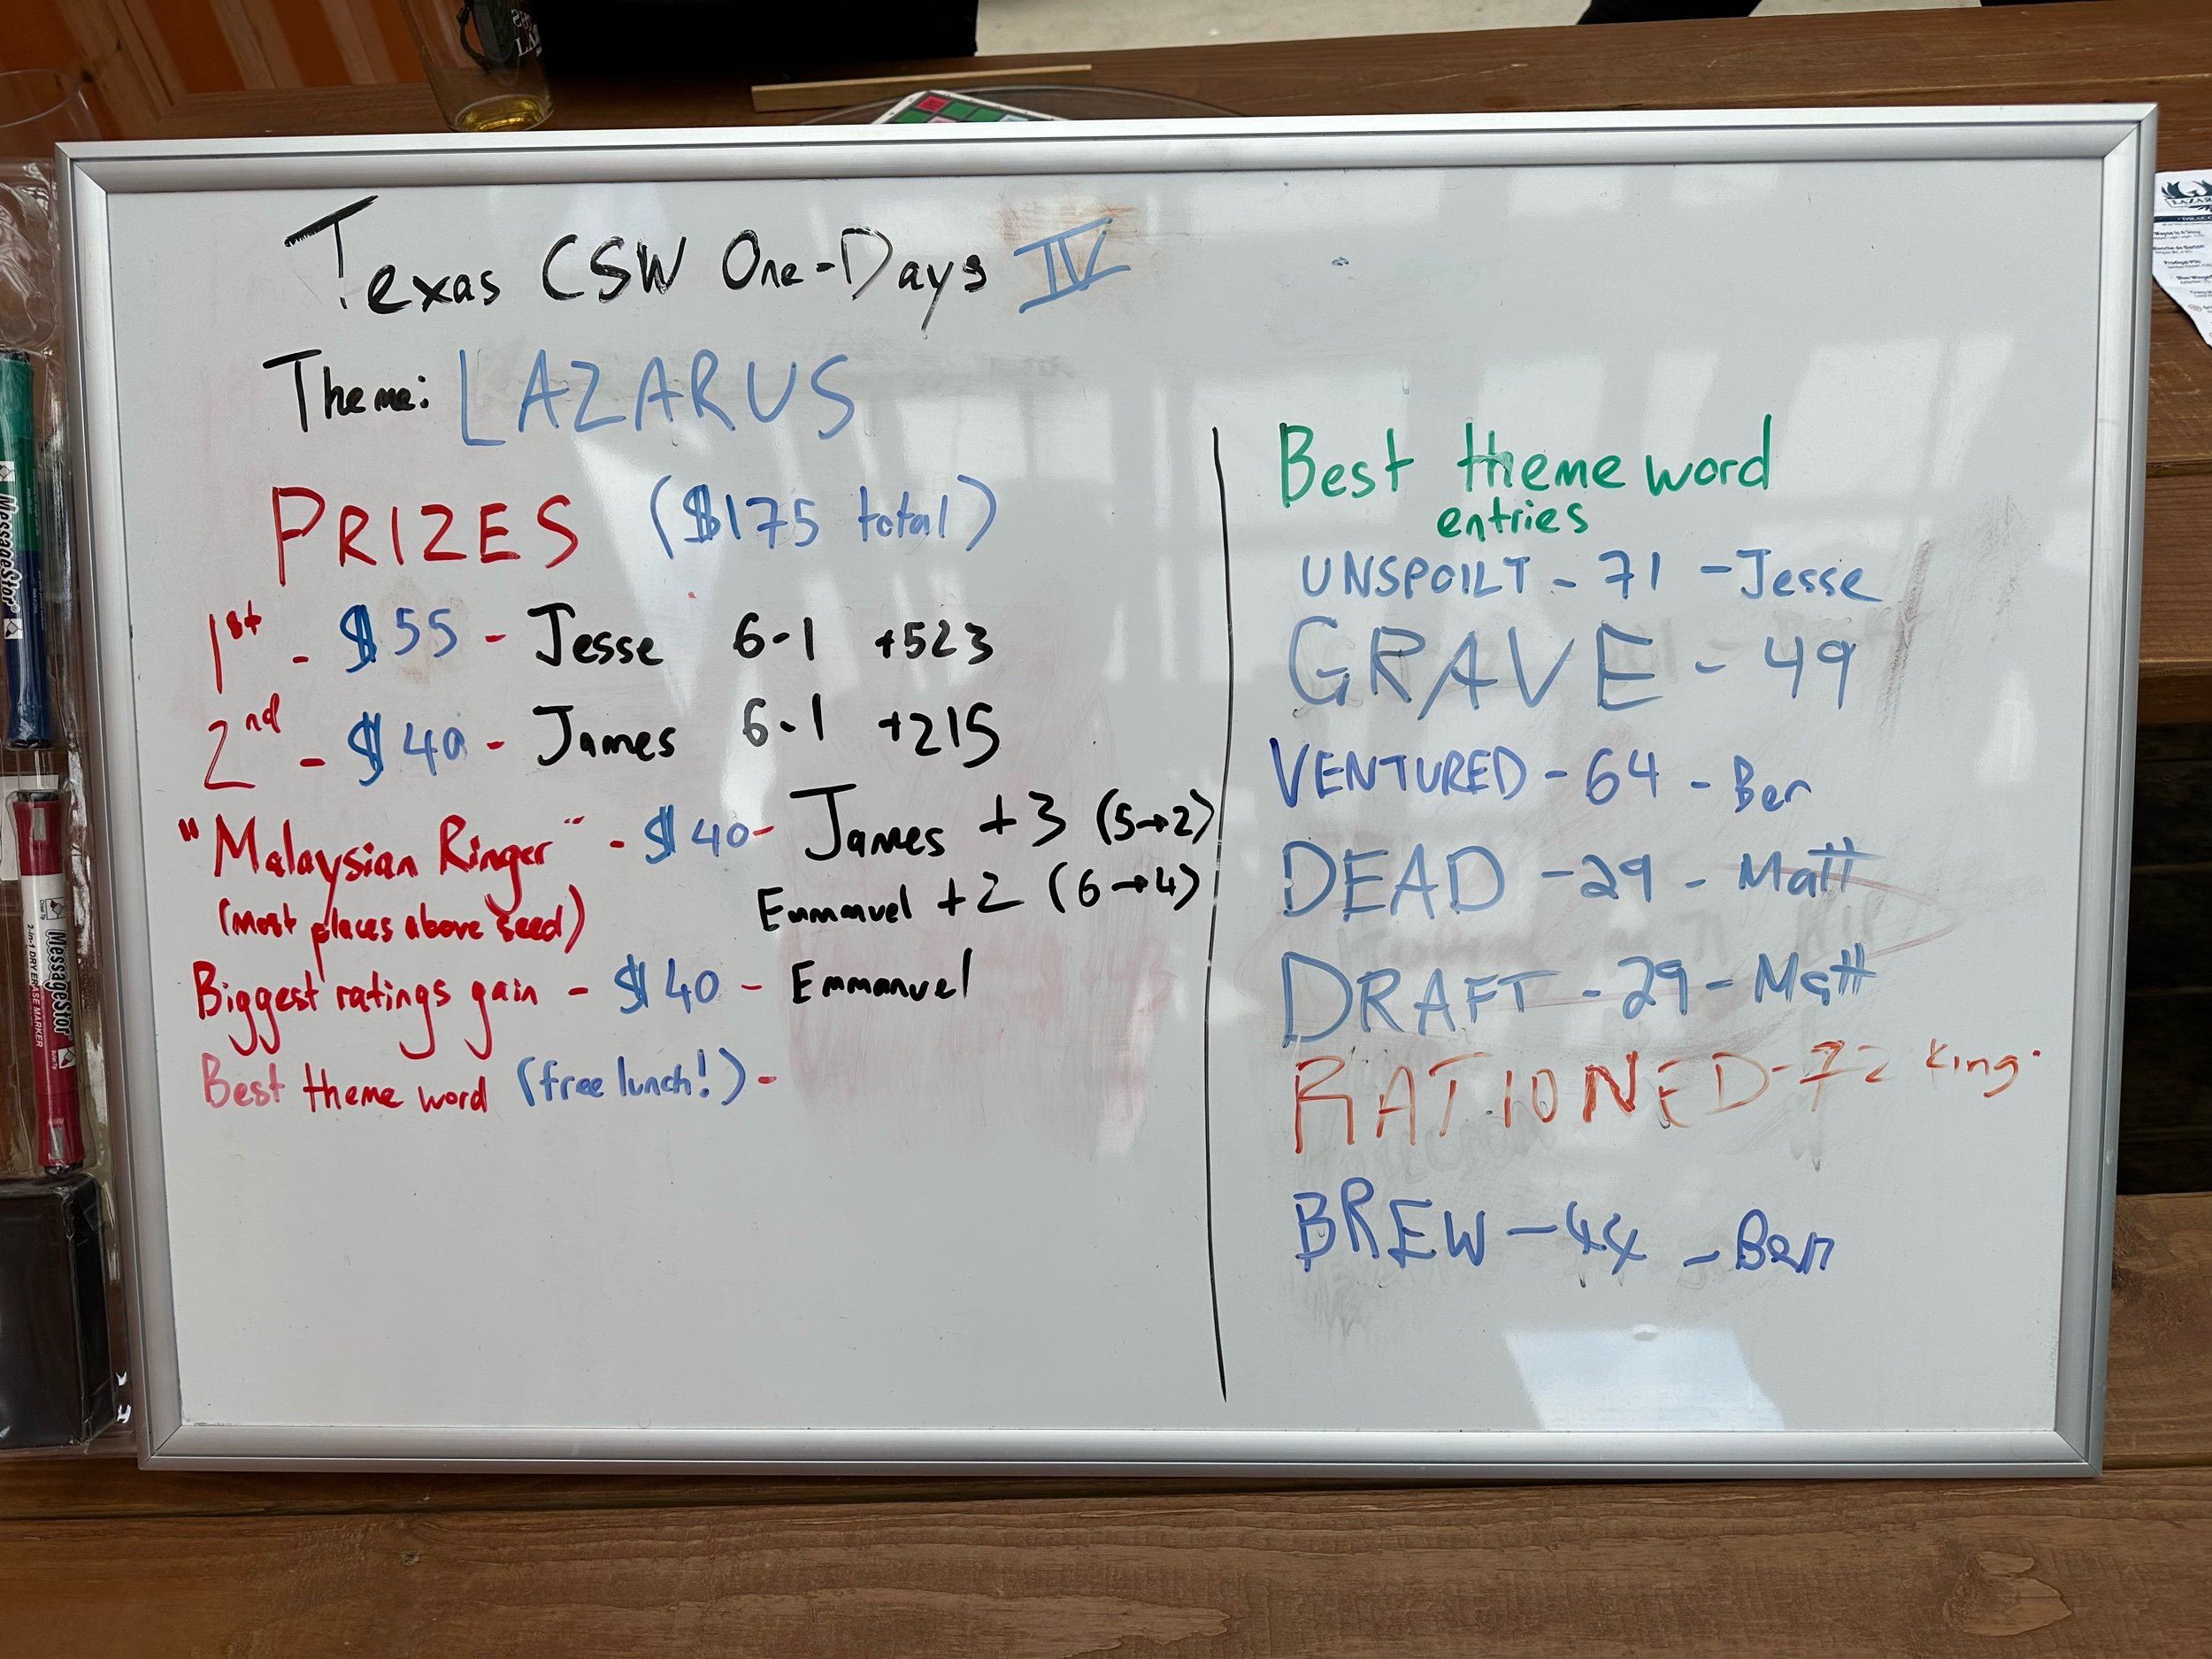 Texas CSW One-Days IV
Theme: LAZARUS
PRIZES ($175 total)
1st - $55 - Jesse 6-1 +523
2nd - $40 - James 6-1 +215
"Malaysian Ringer" - $40 - James +3 (5→2)
(most places above seed) Emmanuel +2 (6→4)
Biggest ratings gain - $40 - Emmanuel
Best theme word (free lunch!) -
Best theme word
entries
UNSPOILT - 71 - Jesse
GRAVE - 49
VENTURED - 64 - Ben
DEAD - 29 - Matt
DRAFT - 29 - Matt
RATIONED - 72 King.
BREW - 44 - Ben
MessageStor
MessageStor
2-in-1 DRY ERASE MARKER
LAZAR